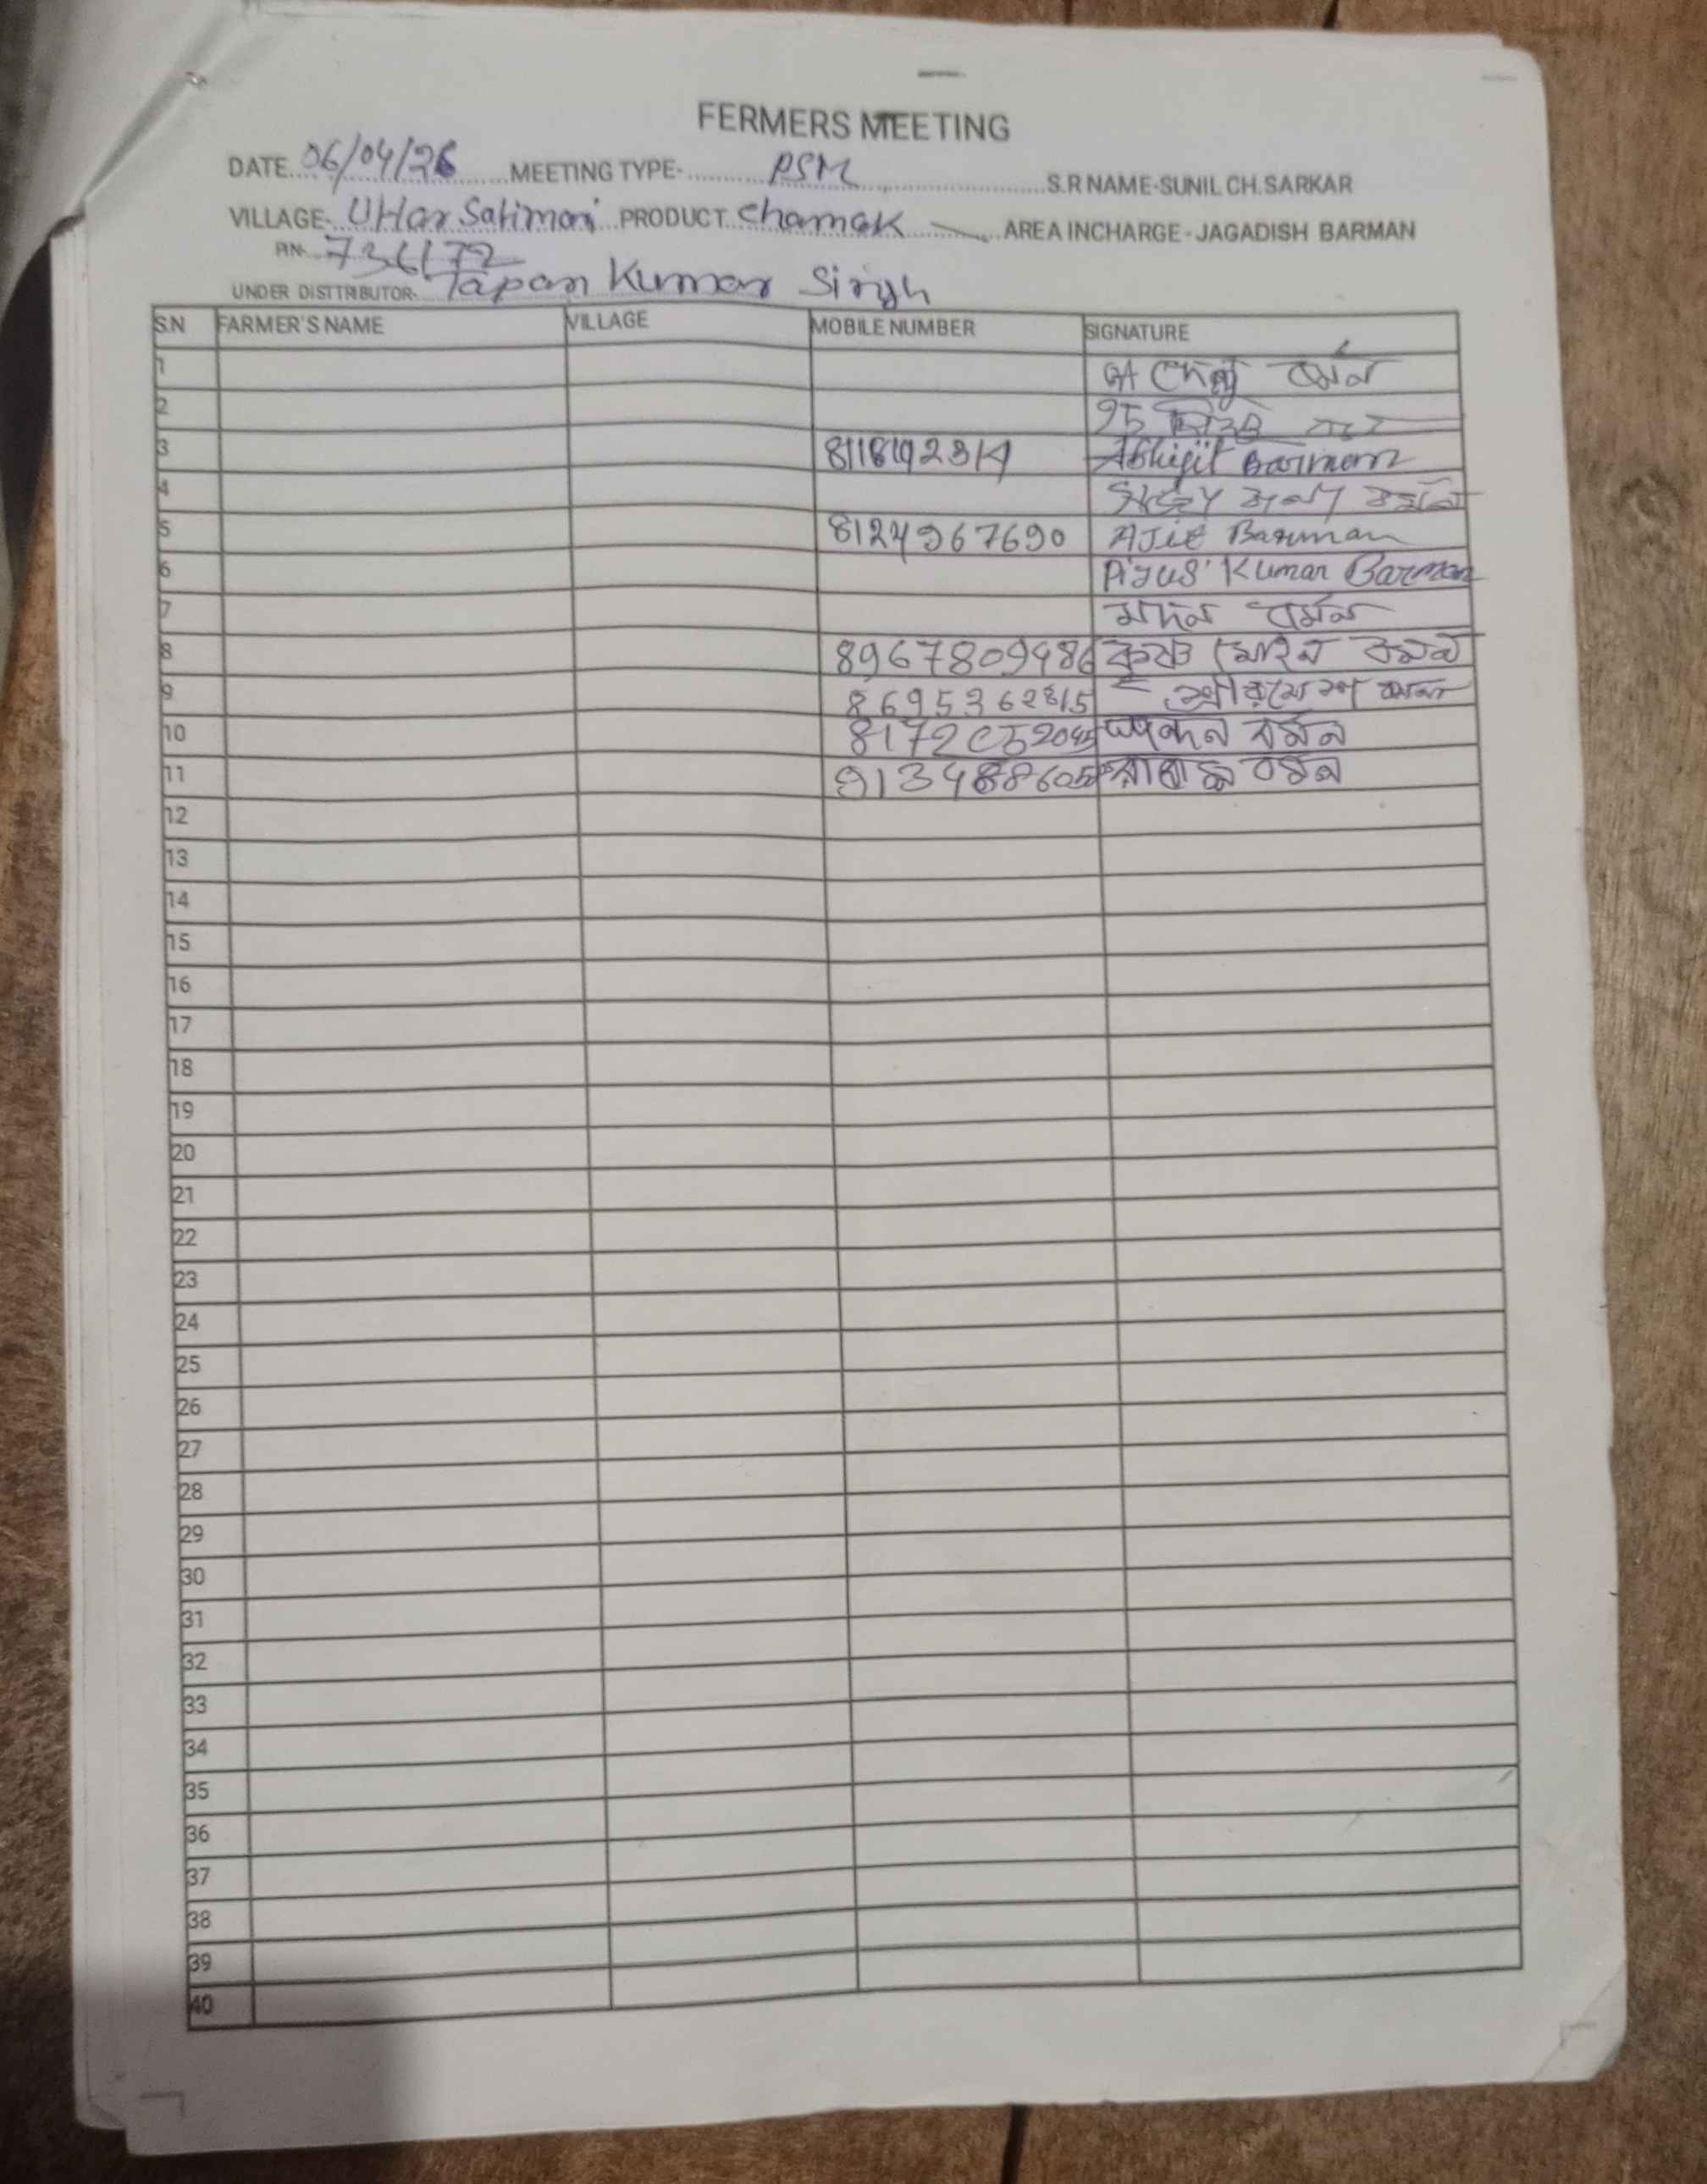 FERMERS MEETING
DATE 06/04/26 MEETING TYPE- PSM S.R NAME-SUNIL CH.SARKAR
VILLAGE- Uttar Satimari PRODUCT Chamak AREA INCHARGE - JAGADISH BARMAN
PIN- 736172
UNDER DISTTRIBUTOR- Tapan Kumar Singh
S.N FARMER'S NAME VILLAGE MOBILE NUMBER SIGNATURE
1 বর্মন
2
3 Abhijit Barman
4
5 8124967690 Ajit Barman
6 Pijus Kumar Barman
7 মদন বর্মন
8 বর্মন
9 বর্মন
10 বর্মন
11 বর্মন
12
13
14
15
16
17
18
19
20
21
22
23
24
25
26
27
28
29
30
31
32
33
34
35
36
37
38
39
40